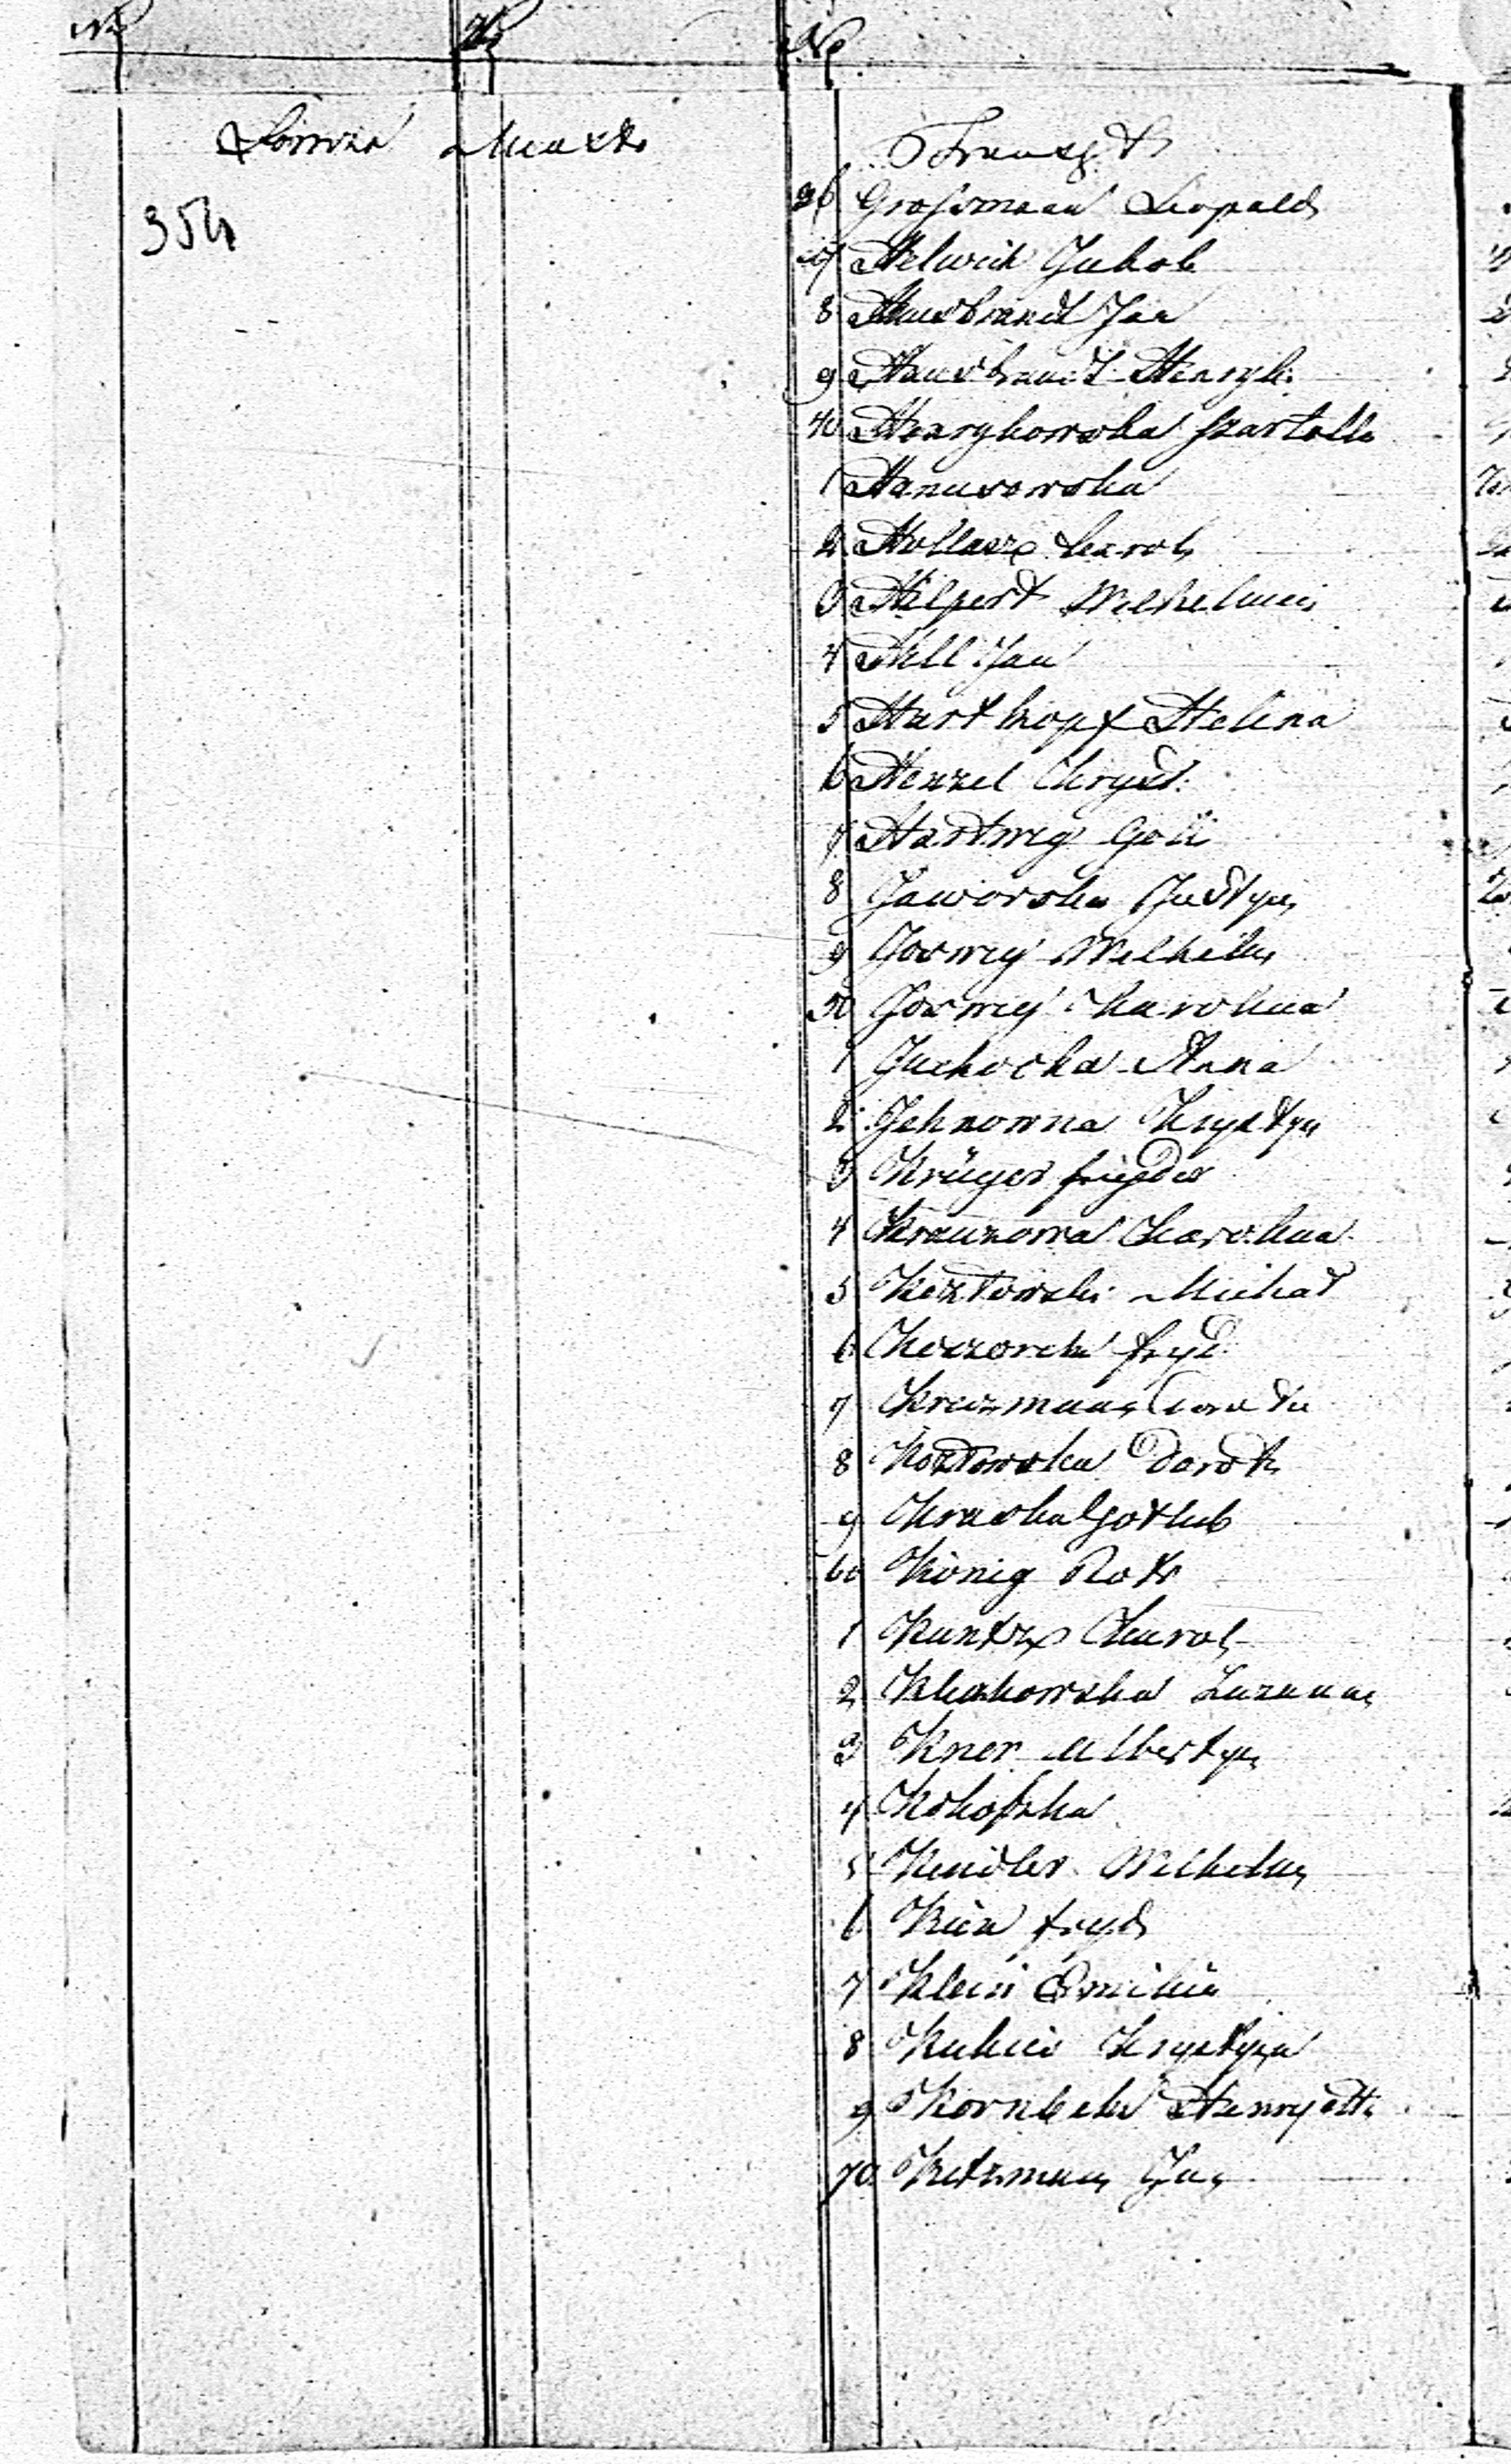 No No No
Łomża Miasto Transpt
354
36 Grossmann Leopold
37 Helwich Jakob
8 Hausbrandt Jan
9 Hausbrandt Henryk
40 Henrykowska Szarlotta
1 Hanusowska
2 Hollasz Karol
3 Hilpert Wilhelmi
4 Hill Jan
5 Hartkopf Helena
6 Henzel Chryst.
7 Hartwig Gotl
8 Jaworska Justyn
9 Joswig Wilhelm
50 Joswig Karolina
1 Juchocka Anna
2 Jehnowna Krystyn
3 Krüger fryder
4 Krauzowa Karolina
5 Kozłowski Michał
6 Kaczorek fryd.
7 Kreizman
8 Kozłowska Dorot
9 Kraska Gotlieb
60 König Rote
1 Kuntze Karol
2 Klukowska Zuzanna
3 Knor Albertyn
4 Kokoszka
5 Kendler Wilhelm
6 fryd
7 Klein Emilia
8 Krystyna
9 Kornbek Henryetta
70 Kitzman Jan